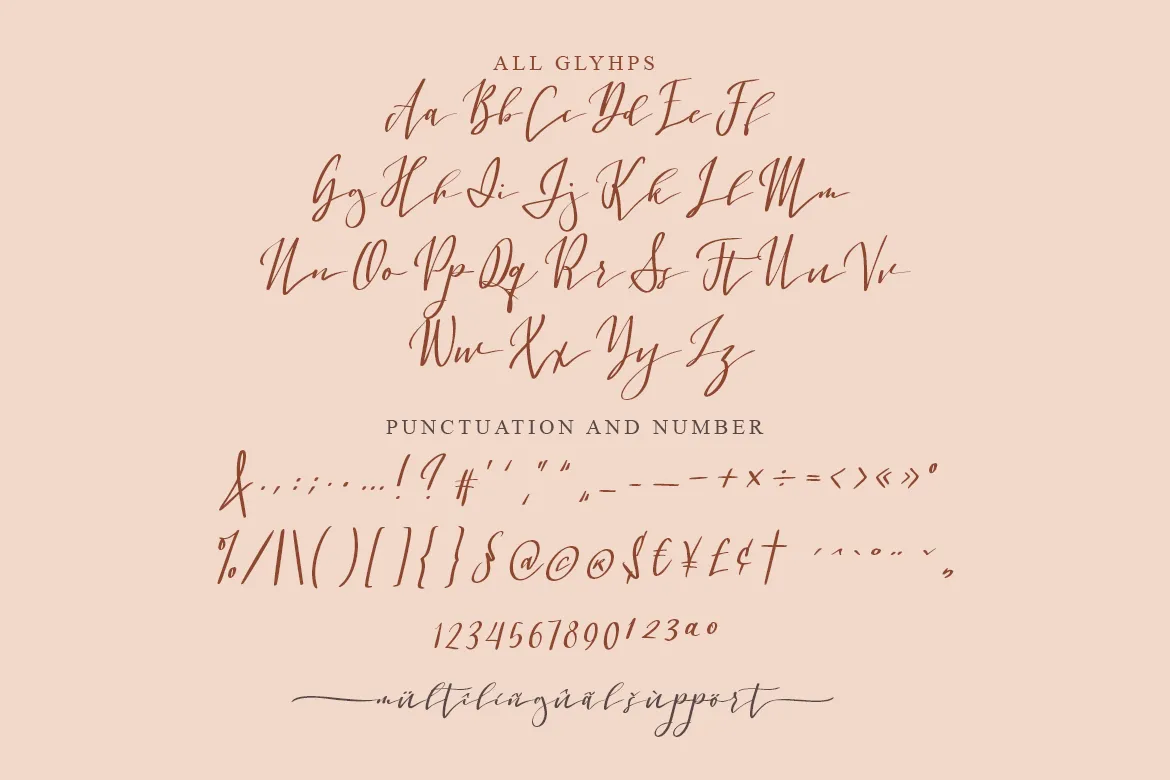 ALL GLYHPS
Aa Bb Cc Dd Ee Ff
Gg Hh Ii Jj Kk Ll Mm
Nn Oo Pp Qq Rr Ss Tt Uu Vv
Ww Xx Yy Zz
PUNCTUATION AND NUMBER
& . , : ; · • … ! ? # ' ' , " " „ _ - — – + × ÷ = < > « » °
% / | \ ( ) [ ] { } § @ © ® $ € ¥ £ ¢ † ´ ^ ` ° ¨ ˇ „
1234567890 1 2 3 a o
mültîlíñgûãlšùppört